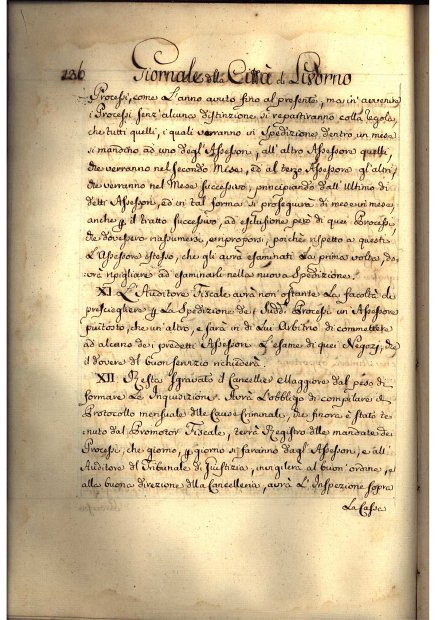 136 Giornale della Città di Livorno
Processi, come l'anno avuto fino al presente, ma in avvenire
i Processi senz'alcuna distinzione si repartiranno colla regola,
che tutti quelli, i quali verranno in Spedizione dentro un mese
si mandino ad uno degl'Assessori, all'altro Assessore quelli,
che verranno nel secondo Mese, ed al terzo Assessore gl'altri,
che verranno nel Mese successivo, principiando dall'ultimo di
detti Assessori, ed in tal forma si proseguirà di mese in mese,
anche p. il tratto successivo, ad esclusione però di quei Processi
che dovessero riassumersi, o riproporsi, poichè rispetto a questi
l'Assessore istesso, che gli avrà esaminati la prima volta do-
vrà ripigliare ad esaminarli nella nuova Spedizione.
XI. L'Auditore Fiscale avrà non ostante la facoltà di
prescegliere p. la Spedizione de' sudd. Processi un Assessore
piutosto, che un'altro, e sarà in di lui Arbitrio di commettere
ad alcuno dei predetti Assessori l'esame di quei Negozj, che
il dovere del buon servizio richiederà.
XII. Resta sgravato il Cancelliere Maggiore dal peso di
formare le Inquisizioni. Avrà l'obbligo di compilare il
Protocollo mensuale delle Cause Criminali, che finora è stato te-
nuto dal Promotor Fiscale, terrà Registro delle mandate dei
Processi, che giorno, p. giorno si faranno dagl'Assessori, e all'
Auditore del Tribunale di Giustizia, invigilerà al buon'ordine, e
alla buona direzione della Cancelleria, avrà l'Inspezione sopra
la Cassa